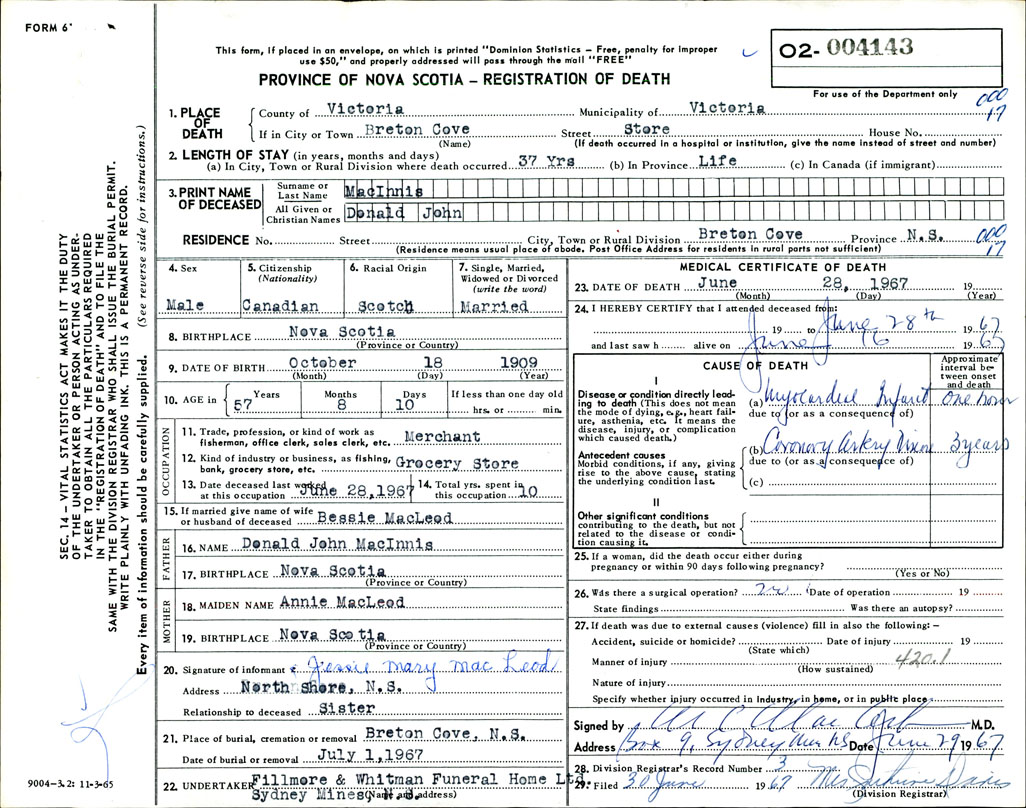 FORM 6
This form, if placed in an envelope, on which is printed "Dominion Statistics — Free, penalty for improper
use $50," and properly addressed will pass through the mail "FREE"
02- 004143
PROVINCE OF NOVA SCOTIA — REGISTRATION OF DEATH
For use of the Department only
000
17
1. PLACE OF DEATH
County of Victoria Municipality of Victoria
If in City or Town Breton Cove Street Store House No.
(Name) (If death occurred in a hospital or institution, give the name instead of street and number)
2. LENGTH OF STAY (in years, months and days)
(a) In City, Town or Rural Division where death occurred 37 Yrs (b) In Province Life (c) In Canada (if immigrant)
3. PRINT NAME OF DECEASED
Surname or Last Name MacInnis
All Given or Christian Names Donald John
RESIDENCE No. Street City, Town or Rural Division Breton Cove Province N.S. 000
17
(Residence means usual place of abode. Post Office Address for residents in rural parts not sufficient)
4. Sex
Male
5. Citizenship
(Nationality)
Canadian
6. Racial Origin
Scotch
7. Single, Married,
Widowed or Divorced
(write the word)
Married
8. BIRTHPLACE Nova Scotia
(Province or Country)
9. DATE OF BIRTH October 18 1909
(Month) (Day) (Year)
10. AGE in Years 57 Months 8 Days 10 If less than one day old
hrs. or min.
OCCUPATION
11. Trade, profession, or kind of work as
fisherman, office clerk, sales clerk, etc. Merchant
12. Kind of industry or business, as fishing,
bank, grocery store, etc. Grocery Store
13. Date deceased last worked
at this occupation June 28,1967
14. Total yrs. spent in
this occupation 10
15. If married give name of wife
or husband of deceased Bessie MacLeod
FATHER
16. NAME Donald John MacInnis
17. BIRTHPLACE Nova Scotia
(Province or Country)
MOTHER
18. MAIDEN NAME Annie MacLeod
19. BIRTHPLACE Nova Scotia
(Province or Country)
20. Signature of informant Jessie Mary MacLeod
Address North Shore, N.S.
Relationship to deceased Sister
21. Place of burial, cremation or removal Breton Cove, N.S.
Date of burial or removal July 1,1967
22. UNDERTAKER Fillmore & Whitman Funeral Home Ltd.
Sydney Mines, N.S.
(Name and address)
MEDICAL CERTIFICATE OF DEATH
23. DATE OF DEATH June 28, 1967 19
(Month) (Day) (Year)
24. I HEREBY CERTIFY that I attended deceased from:
19 to June 28th 1967
and last saw h alive on June 16 1967
CAUSE OF DEATH
Approximate interval between onset and death
I
Disease or condition directly lead-
ing to death (This does not mean
the mode of dying, e.g., heart fail-
ure, asthenia, etc. It means the
disease, injury, or complication
which caused death.)
(a) Myocardial Infarct One hour
due to (or as a consequence of)
Antecedent causes
Morbid conditions, if any, giving
rise to the above cause, stating
the underlying condition last.
(b) Coronary Artery 3 years
due to (or as a consequence of)
(c)
II
Other significant conditions
contributing to the death, but not
related to the disease or condi-
tion causing it.
25. If a woman, did the death occur either during
pregnancy or within 90 days following pregnancy?
(Yes or No)
26. Was there a surgical operation? no Date of operation 19
State findings Was there an autopsy?
27. If death was due to external causes (violence) fill in also the following: —
Accident, suicide or homicide? Date of injury 19
(State which)
Manner of injury 420.1
(How sustained)
Nature of injury
Specify whether injury occurred in industry, in home, or in public place
Signed by M.D.
Address Box 9, Sydney Mines NS Date June 29 1967
28. Division Registrar's Record Number 3
29. Filed 30 June 1967
(Division Registrar)
SEC. 14 – VITAL STATISTICS ACT MAKES IT THE DUTY
OF THE UNDERTAKER OR PERSON ACTING AS UNDER-
TAKER TO OBTAIN ALL THE PARTICULARS REQUIRED
IN THE "REGISTRATION OF DEATH" AND TO FILE THE
SAME WITH THE DIVISION REGISTRAR WHO SHALL ISSUE THE BURIAL PERMIT.
WRITE PLAINLY WITH UNFADING INK. THIS IS A PERMANENT RECORD.
Every item of information should be carefully supplied. (See reverse side for instructions.)
9004-3.2: 11-3-65